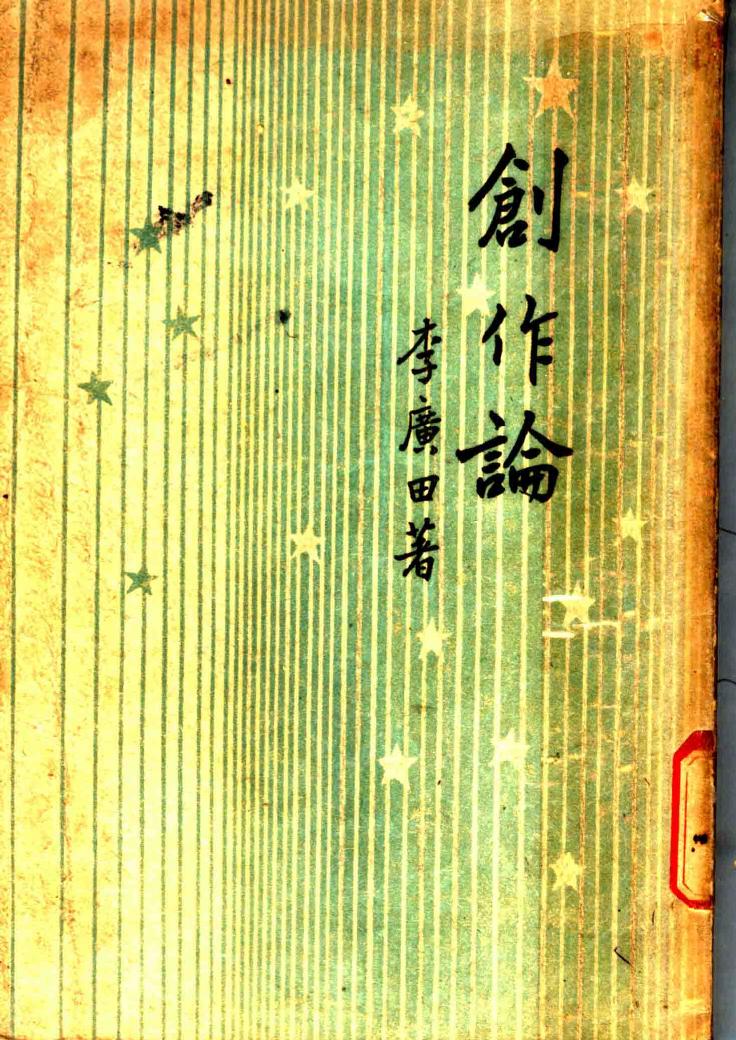 創作論
李廣田著